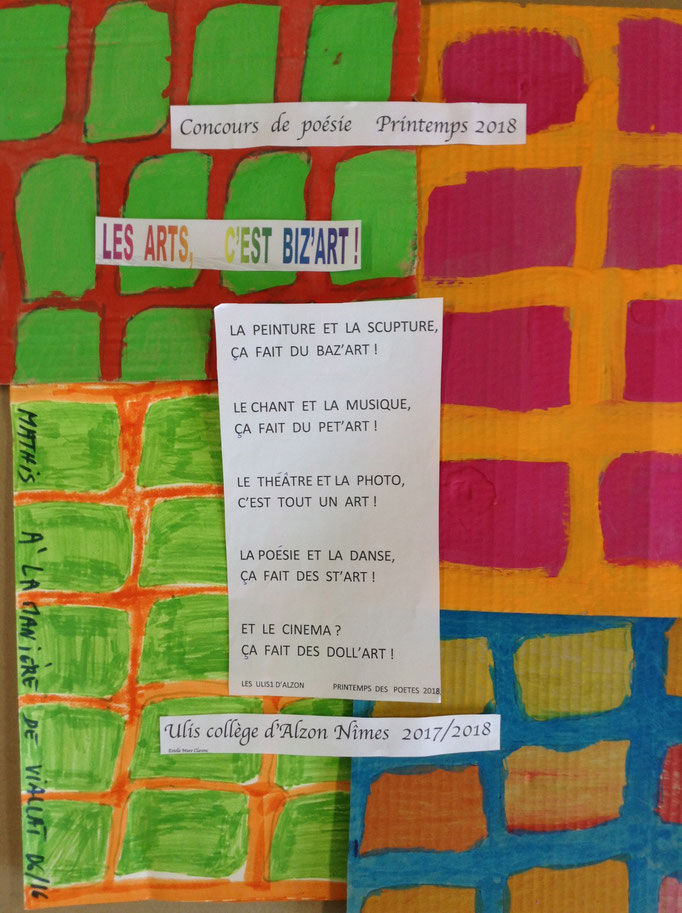 Concours de poésie Printemps 2018
LES ARTS, C'EST BIZ'ART !
LA PEINTURE ET LA SCUPTURE,
ÇA FAIT DU BAZ'ART !
LE CHANT ET LA MUSIQUE,
ÇA FAIT DU PET'ART !
LE THÉÂTRE ET LA PHOTO,
C'EST TOUT UN ART !
LA POÉSIE ET LA DANSE,
ÇA FAIT DES ST'ART !
ET LE CINEMA ?
ÇA FAIT DES DOLL'ART !
LES ULIS1 D'ALZON PRINTEMPS DES POETES 2018
Ulis collège d'Alzon Nîmes 2017/2018
MATHIS A' LA MANIÈRE DE VIALLAT 06/16